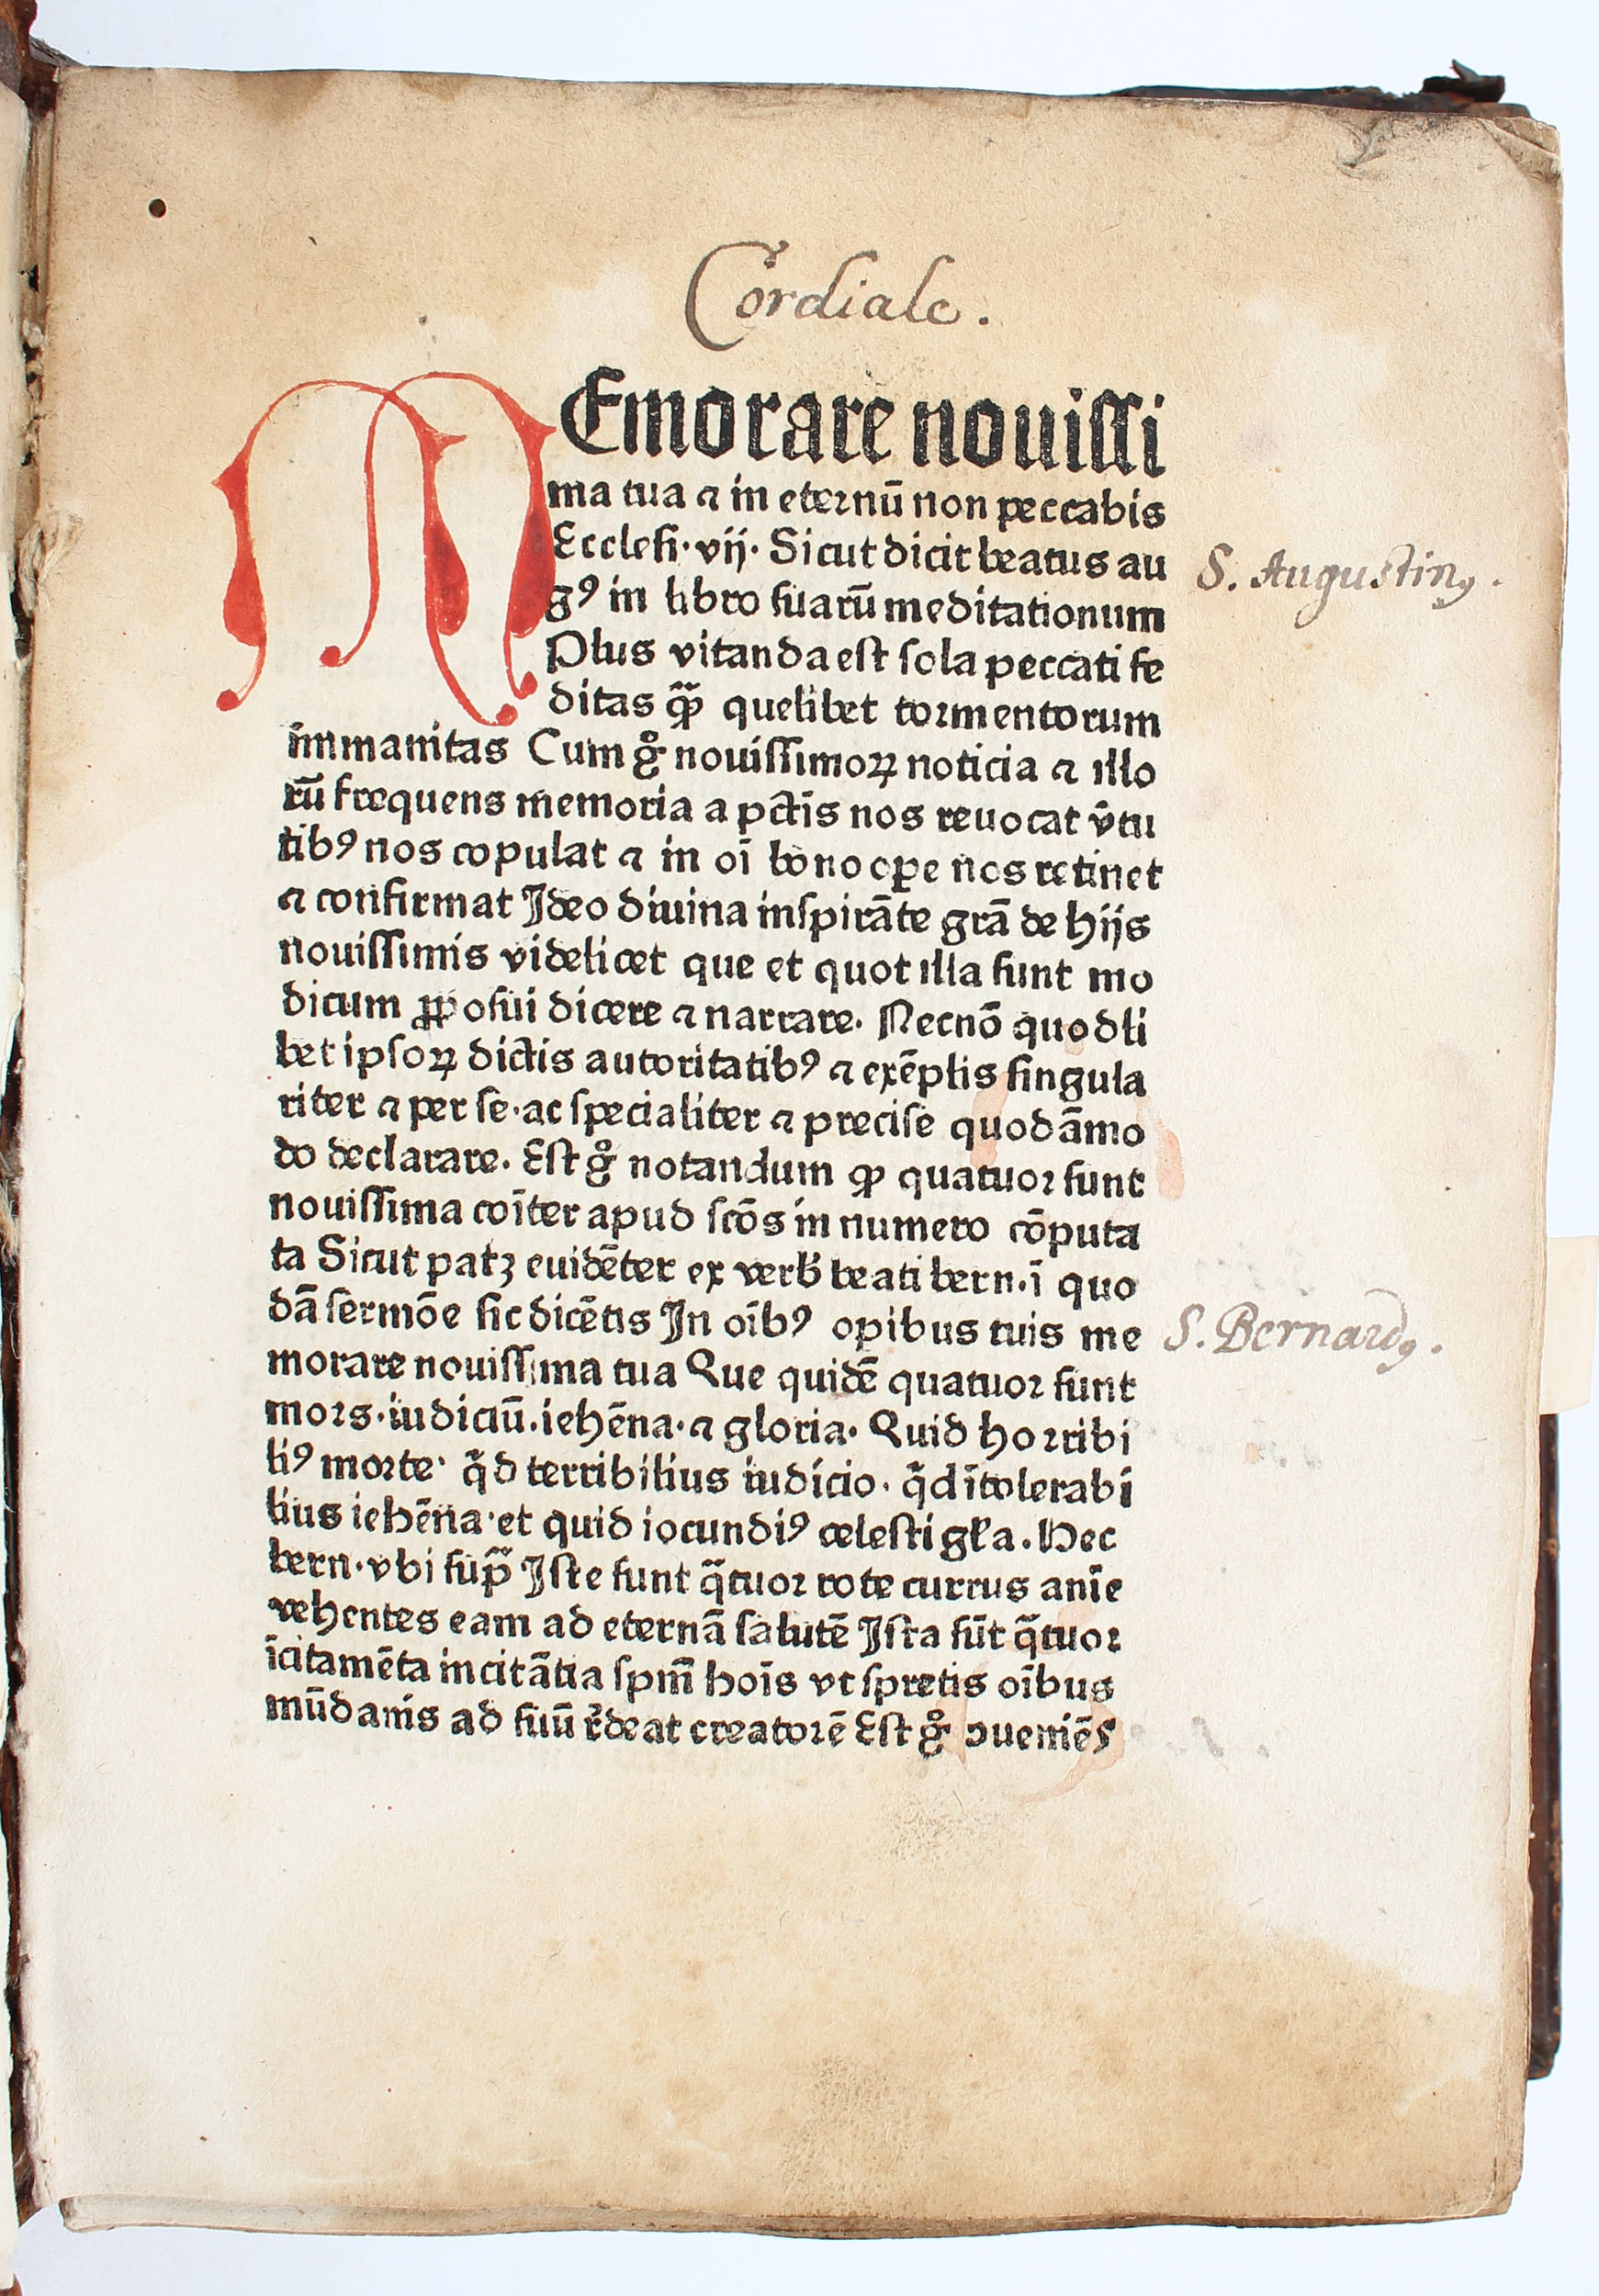 Cordiale.
MEmorare nouissi
ma tua ⁊ in eternū non peccabis
Ecclesi·vij· Sicut dicit beatus au
gꝰ in libro suarū meditationum
Plus vitanda est sola peccati fe
ditas qᷓꝫ quelibet tormentorum
immanitas Cum gͦ nouissimoꝝ noticia ⁊ illo
rū frequens memoria a pctīs nos reuocat v̄tu
tibꝰ nos copulat ⁊ in oī bono oꝑe nos retinet
⁊ confirmat Ideo diuina inspirāte grā de hijs
nouissimis videlicet que et quot illa sunt mo
dicum ꝓposui dicere ⁊ narrare. Necnō quodli
bet ipsoꝝ dictis autoritatibꝰ ⁊ exēplis singula
riter ⁊ per se·ac specialiter ⁊ precise quodāmo
do declarare. Est gͦ notandum ꝙ quatuor sunt
nouissima coīter apud scōs in numero cōputa
ta Sicut patꝫ euidēter ex verb̄ beati bern.ī quo
dā sermōe sic dicētis In oībꝰ opibus tuis me
morare nouissima tua Que quidē quatuor sunt
mors·iudiciū.iehēna·⁊ gloria· Quid horribi
liꝰ morte· qͥd terribilius iudicio· qͥd ītolerabi
lius iehēna·et quid iocundiꝰ celesti gl̄a. Hec
bern·vbi supᷓ Iste sunt qᷓtuor rote currus anīe
vehentes eam ad eternā salutē Ista sūt qᷓtuor
īcitamēta incitātia spm̄ hoīs vt spretis oībus
mūdanis ad suū r̄deat creatorē Est gͦ ↄueniēs
S. Augustinꝰ.
S. Bernardꝰ.